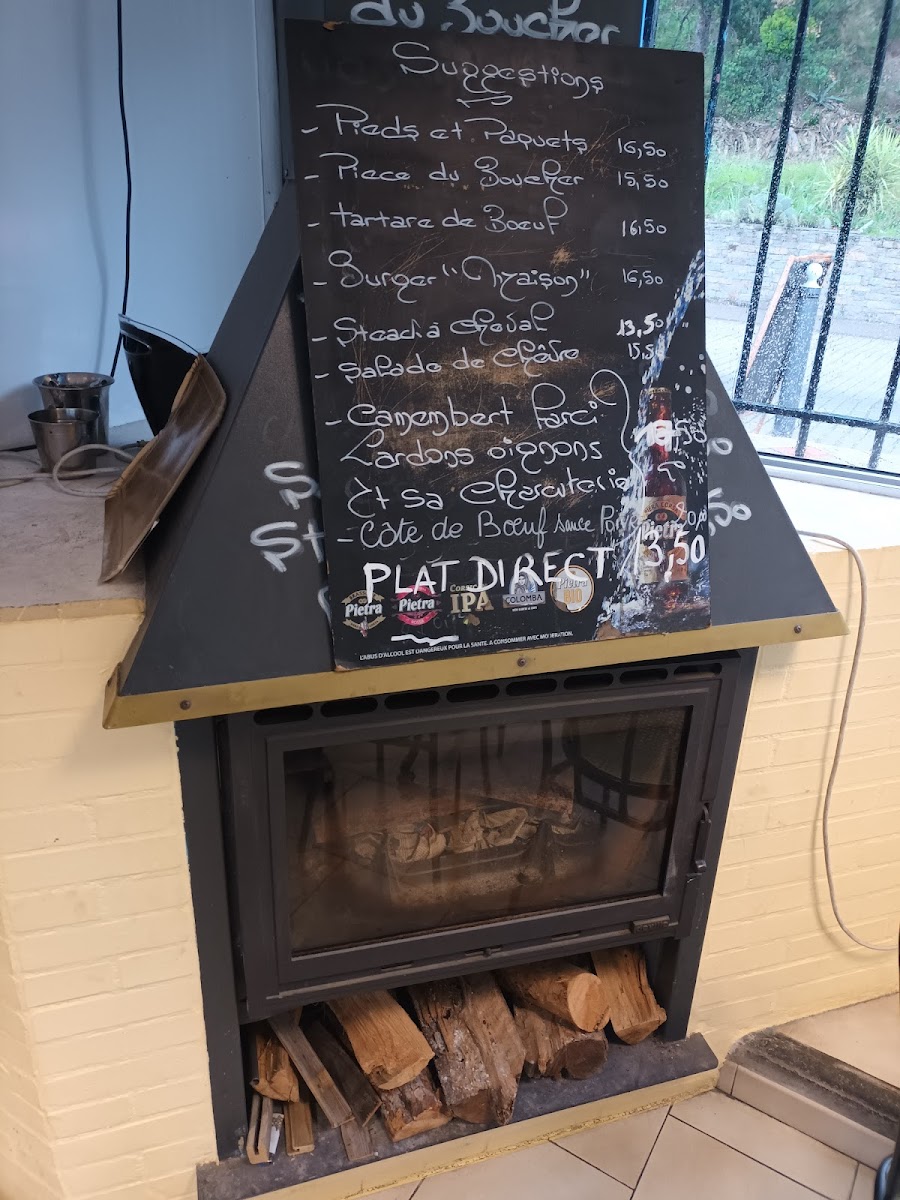 du Boucher
Suggestions
- Pieds et Paquets 16,50
- Piece du Boucher 15,50
- tartare de Boeuf 16,50
- Burger "Maison" 16,50
- Steack à cheval 13,50
- Salade de Chêvre 15,50
- Camembert Farci
Lardons oignons
Et sa Charcuterie
- Côte de Boeuf sauce
PLAT DIRECT 13,50
Pietra
Pietra
IPA
COLOMBA
Pietra
BIO
Pietra
L'ABUS D'ALCOOL EST DANGEREUX POUR LA SANTÉ. A CONSOMMER AVEC MODÉRATION.